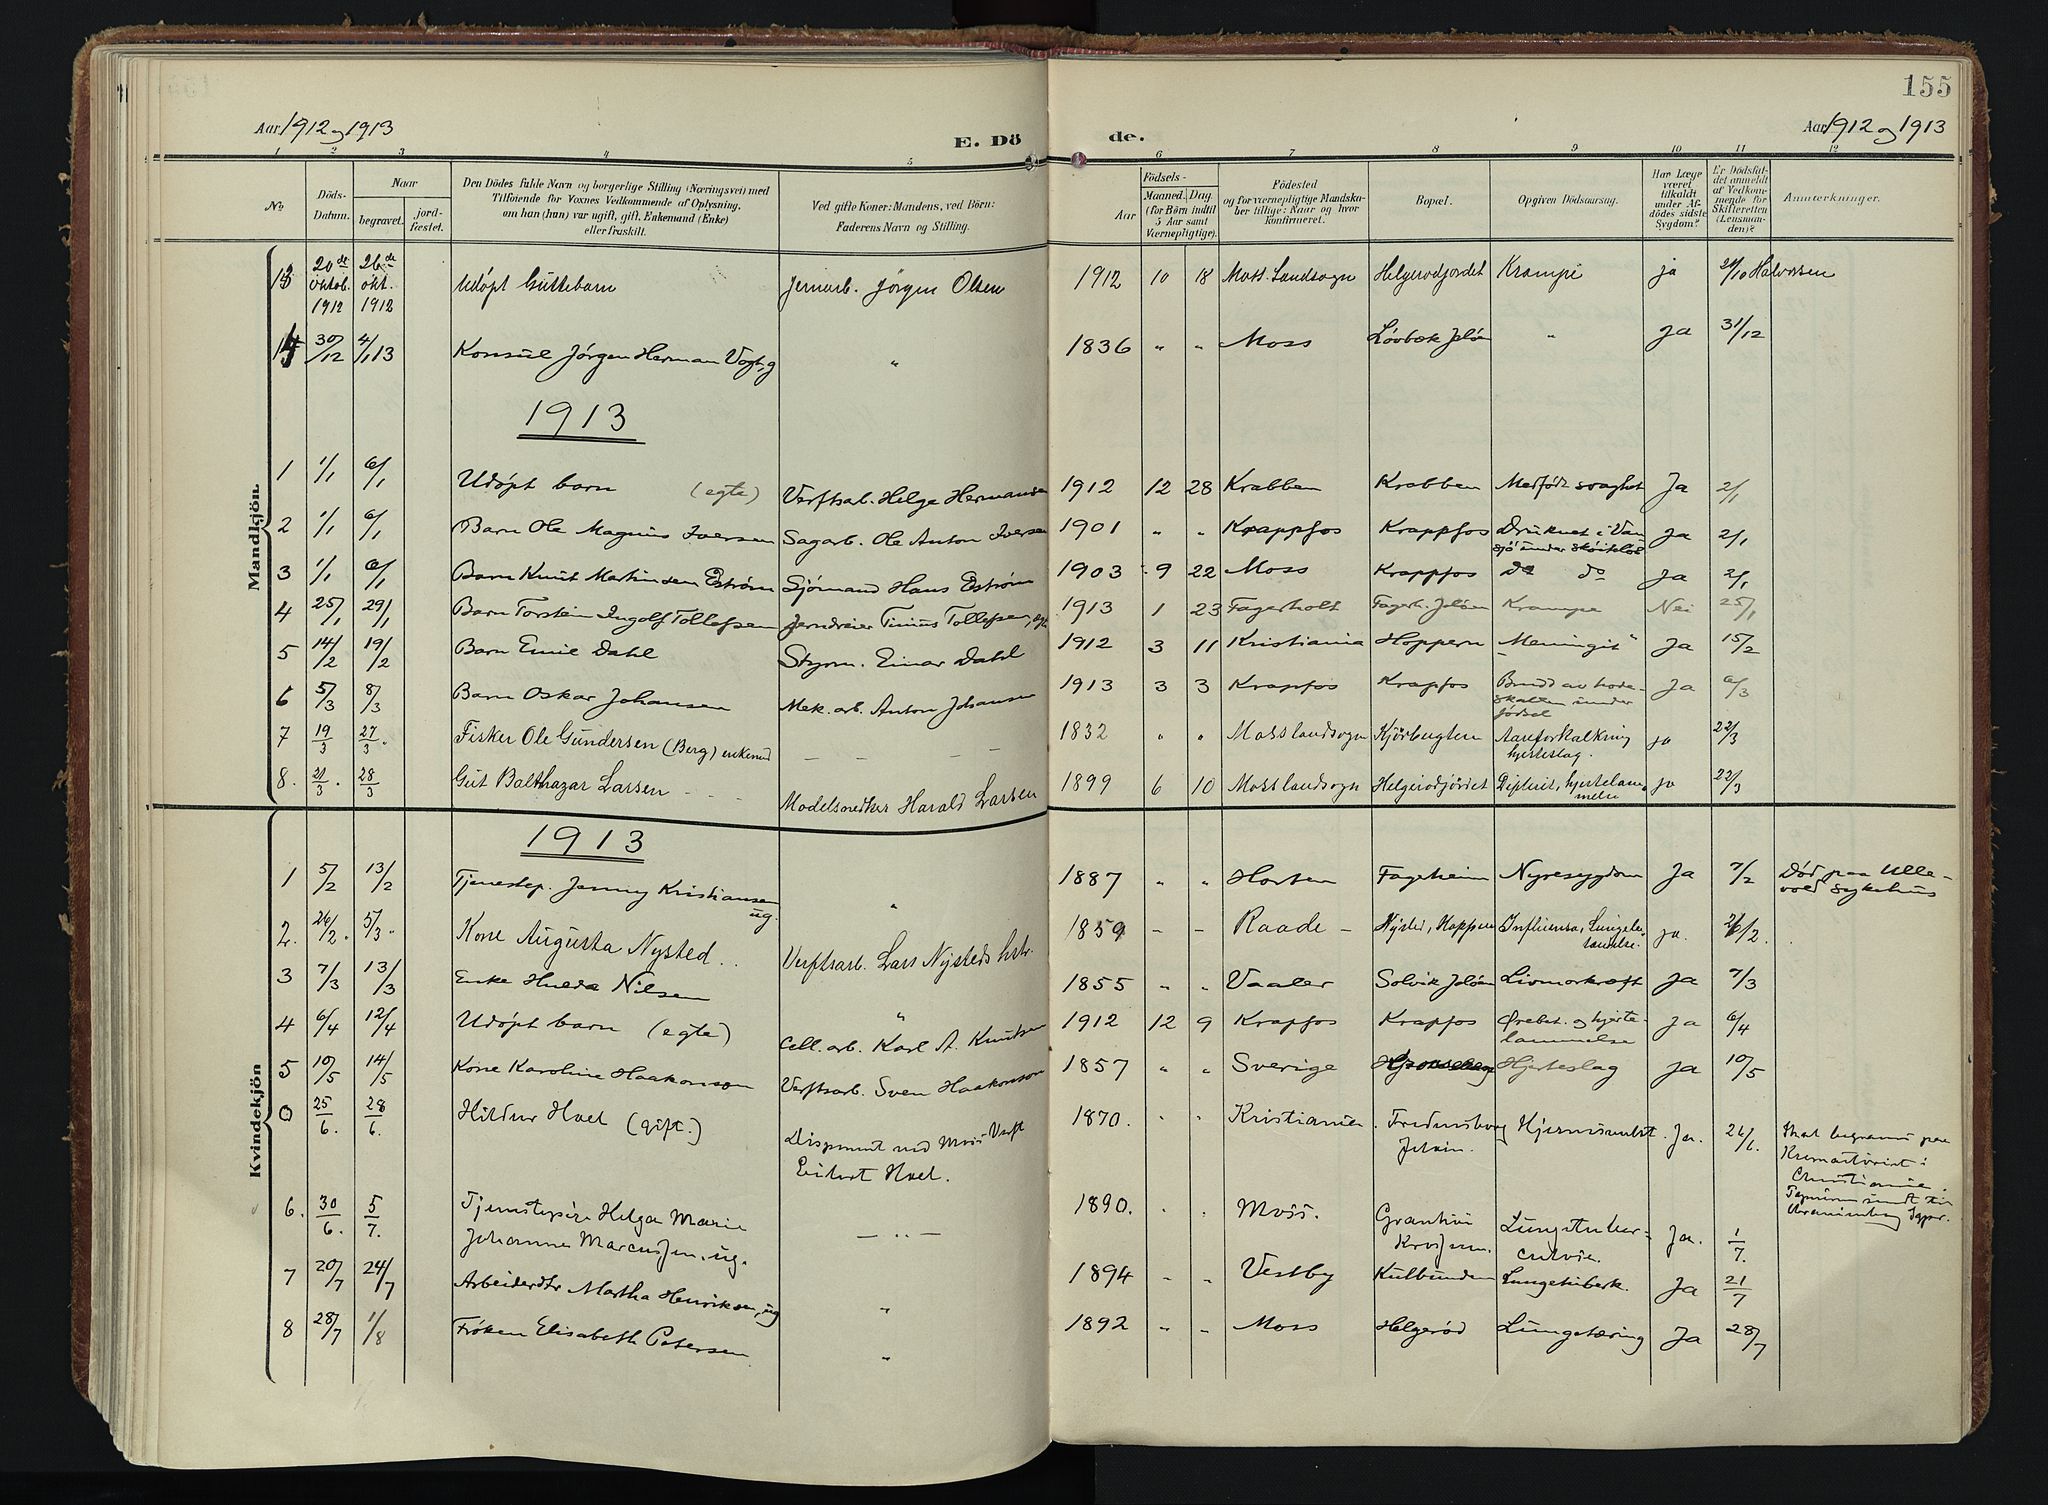 155
Aar 1912 og 1913
E. Dö de.
Aar 1912 og 1913
1 2 3 4 5 6 7 8 9 10 11 12
No
Döds-Datum.
Naar
begravet.
jord-fæstet.
Den Dödes fulde Navn og borgerlige Stilling (Næringsvei) med
Tilföiende for Voxnes Vedkommende af Oplysning,
om han (hun) var ugift, gift, Enkemand (Enke)
eller fraskilt.
Ved gifte Koner: Mandens, ved Börn:
Faderens Navn og Stilling.
Födsels-
Aar
Maaned. Dag.
(for Börn indtil
5 Aar samt
Værnepligtige).
Födested
og for værnepligtige Mandska-
ber tillige: Naar og hvor
konfirmeret.
Bopæl.
Opgiven Dödsaarsag.
Har Læge
været
tilkaldt
under Af-
dödes sidste
Sygdom?
Er Dödsfal-
det anmeldt
af Vedkom-
mende for
Skifteretten
(Lensman-
den)?
Anmærkninger.
Mandkjön.
13 20de oktob. 1912 26de okt. 1912 Udøpt Guttebarn Jernarb. Jørgen Olsen 1912 10 18 Moss Landsogn Helgerødjordet Krampe ja 21/10 Halvorsen
14 30/12 4/1 13 Konsul Jørgen Herman Vogt, g " 1836 " " Moss Løvbæk Jeløen " Ja 31/12
1913
1 1/1 6/1 Udøpt barn (egte) Verftsarb. Helge Hermansen 1912 12 28 Krabben Krabben Medfødt svaghet Ja 2/1
2 1/1 6/1 Barn Ole Magnus Iversen Sagarb. Ole Anton Iversen 1901 " " Krappfos Krappfos Druknet i Van sjø under skøiteløb Ja 2/1
3 1/1 6/1 Barn Knut Martinsen Estrøm Sjømand Hans Estrøm 1903 9 22 Moss Krappfos do do Ja 2/1
4 25/1 29/1 Barn Torstein Ingolf Tollefsen Jerndreier Tinius Tollefsen, 1913 1 23 Fagerholt Fagerh. Jeløen Krampe Nei 25/1
5 14/2 19/2 Barn Emil Dahl Styrm. Einar Dahl 1912 3 11 Kristiania Hoppern "Meningit" Ja 15/2
6 5/3 8/3 Barn Oskar Johansen Mek. arb. Anton Johansen 1913 3 3 Krapfos Krapfos Brudd av hode-skallen under fødsel Ja 6/3
7 19/3 27/3. Fisker Ole Gundersen (Berg) enkemd — — — 1832 " " Moss landsogn Kjørbugten Aareforkalkning hjerteslag. ja 22/3
8. 21/3. 28/3 Gut Balthazar Larsen - - - Modelsnedker Harald Larsen 1899 6 10 Moss landsogn Helgerødjordet Difterit, hjertelam-melse ja 22/3
Kvindekjön
1913
1 5/2 13/2 Tjenestep. Jenny Kristiansen ug. " 1887 " " Horten Fageheim Nyresygdom Ja 7/2 Død paa Ulle-vold sykehus
2. 26/2. 5/3. Kone Augusta Nysted.. Verftsarb. Lars Nysteds hstr. 1859 - - Raade - Nysted, Hoppern Influensa, Lungebe-tændelse. ja. 26/2.
3 7/3 13/3 Enke Hulda Nilsen " 1855 " " Vaaler Solvik Jeløen Livmorkræft Ja 7/3
4 6/4 12/4 Udøpt barn (egte) Cell. arb. Karl A. Knutsen 1912 12 9 Krapfos Krapfos Ørebet. og hjerte-lammelse Ja 6/4
5 10/5 14/5 Kone Karoline Haakonson Verftsarb. Sven Haakonson 1857 " " Sverige Hjerteslag Ja 10/5
0 25/6. 28/6. Hildur Hvel (gift.) Disponent ved Moss Verft Hvel. 1870. " " Kristiania. Jeløen. Ja. 26/6. Skal begraves paa Krematoriet i Christiania.
6. 30/6. 5/7. Tjenestepige Helga Marie Johanne Marcussen, ug. — " — 1890. " " Moss. Lungetuber-culose. Ja. 1/7.
7 20/7 24/7 Arbeiderdtr Martha Henriksen, ug " 1894 " " Vestby Kulbunden Lungetuberk. Ja 21/7
8 28/7 1/8 Frøken Elisabeth Petersen " 1892 " " Moss Helgerød Lungetæring Ja 28/7